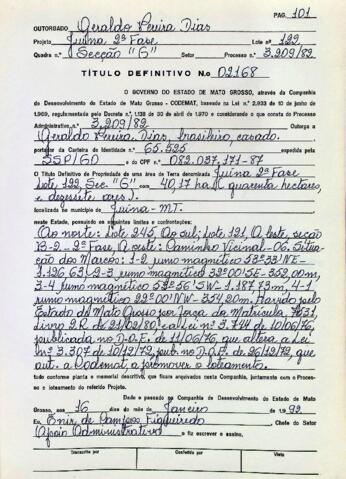 PAG. 101
OUTORGADO Geraldo Pereira Dias
Projeto Juína 2ª Fase Lote nº 122
Quadra n.º Secção "G" Setor Processo n.º 3.209/82
TÍTULO DEFINITIVO N.o 02168
O GOVERNO DO ESTADO DE MATO GROSSO, através da Companhia
de Desenvolvimento do Estado de Mato Grosso - CODEMAT, baseado na Lei n.º 2.933 de 10 de junho
de 1969, regulamentada pelo Decreto n.º 1.138 de 30 de abril de 1970 e considerando o que consta do Processo
Administrativo n.º 3.209/82. Outorga a
Geraldo Pereira Dias, brasileiro, casado.
portador da Carteira de Identidade n.º 65.525 expedida pela
SSP/GO e do CPF n.º 082.037.171-87
O Título Definitivo de Propriedade de uma área de Terra denominada Juína 2ª Fase
Lote 122, Sec. "G" com 40,17 ha (quarenta hectares,
e dezesete ares).
localizada no município de Juína - MT.
neste Estado, possuindo os seguintes limites e confrontações:
Ao norte: Lote 245, Ao Sul: Lote 121, A leste, seção
B-2 - 2ª Fase, A oeste: Caminho Vicinal-06. Situa-
ção dos Marcos: 1-2 rumo magnético 53º33'NE-
1.126,63, 2-3 rumo magnético 32º00'SE-352,00m,
3-4 rumo magnético 52º56'SW-1.187,73m, 4-1
rumo magnético 22º00'NW-354,20m. Havido pelo
Estado de Mato Grosso por força da Matrícula, 7631,
Livro 2.R. de 21/02/80, e a Lei nº 3.744 de 10/06/76,
publicada no D.O.E. de 11/06/76, que altera a Lei
nº 3.307 de 18/12/72, pub. no D.O.E. de 26/12/72, que
aut. a Codemat, a promover o loteamento.
tudo conforme planta e memorial descritivo, que ficam arquivados nesta Companhia, juntamente com o Proces-
so e loteamento do referido Projeto.
Dado e passado na Companhia de Desenvolvimento do Estado de Mato
Grosso, aos 16 dias do mês de Janeiro de 1.992
Eu, Enir de Campos Figueiredo Chefe do Setor
Apoio Administrativo o fiz escrever e assino.
Transcrito por Conferido por Visto